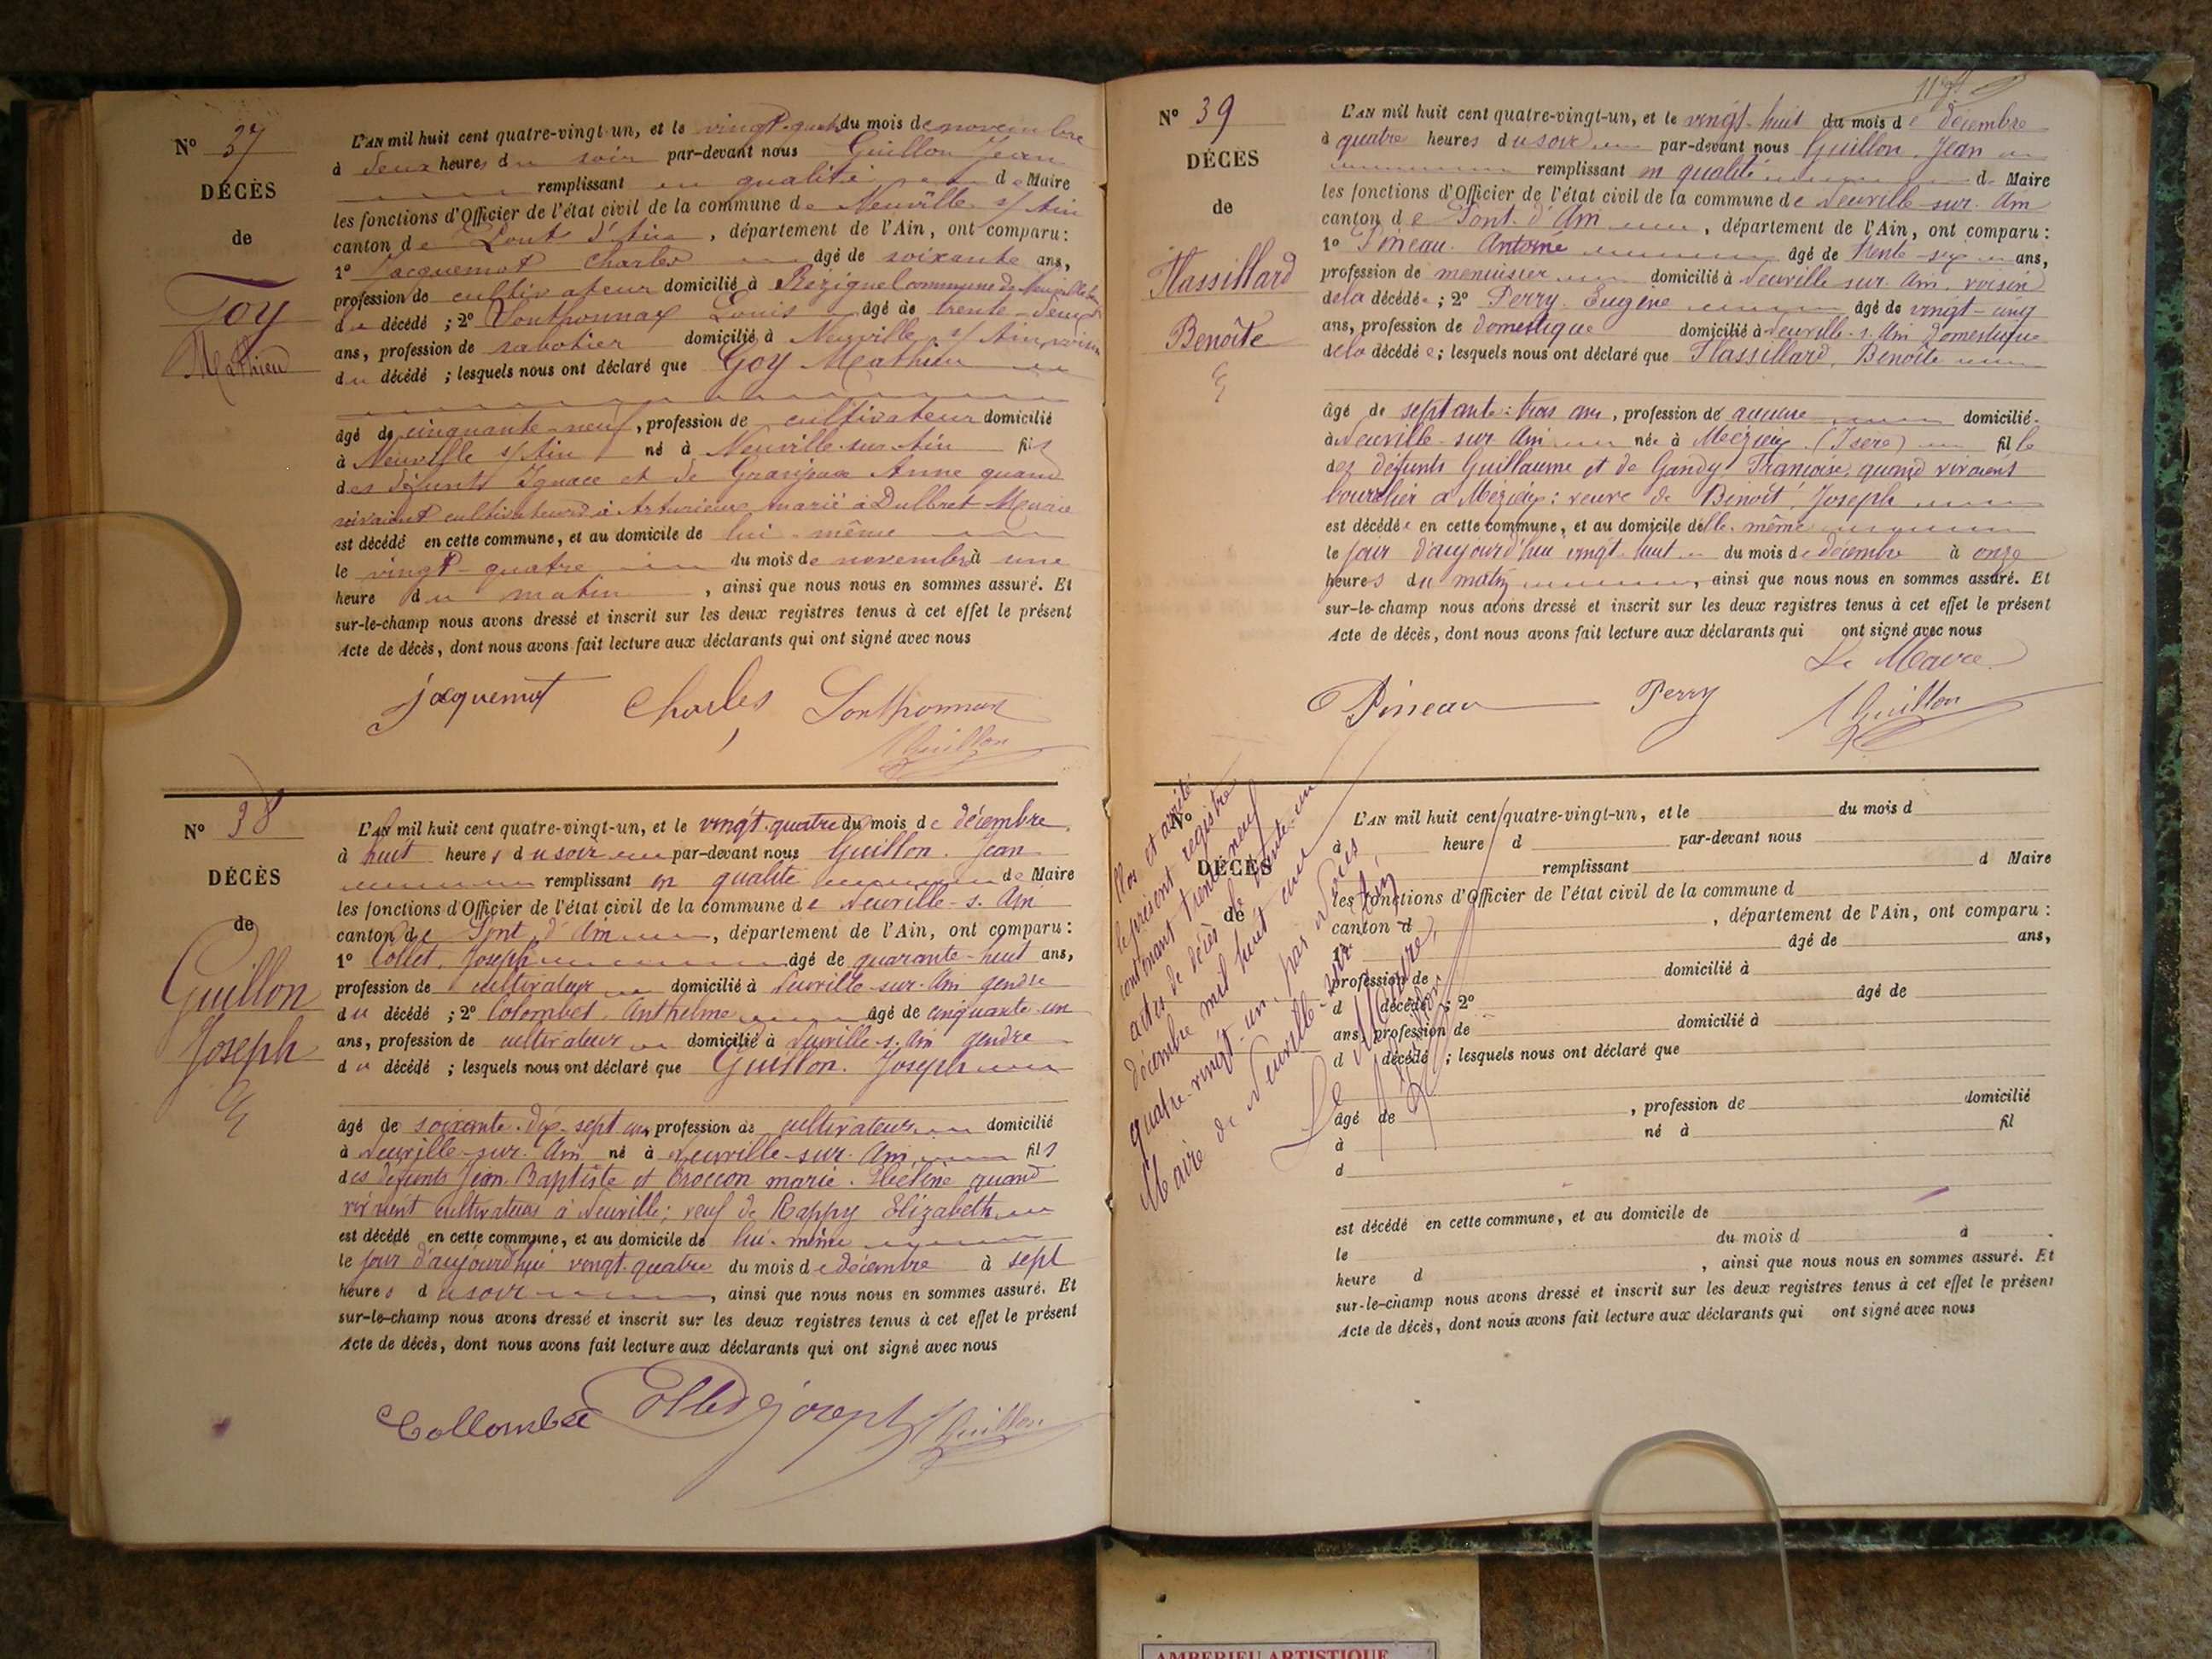 N° 37
DÉCÈS
de
Goy
Mathieu
L'AN mil huit cent quatre-vingt-un, et le vingt-quatre du mois de novembre
à deux heures du soir par-devant nous Guillon Jean
remplissant en qualité de Maire
les fonctions d'Officier de l'état civil de la commune de Neuville s/ Ain
canton de Pont d'Ain, département de l'Ain, ont comparu:
1° Jacquemot Charles âgé de soixante ans,
profession de cultivateur domicilié à Rézignel commune de Neuville
du décédé ; 2° Sonthonnax Louis âgé de trente-deux
ans, profession de sabotier domicilié à Neuville s/ Ain, voisin
du décédé ; lesquels nous ont déclaré que Goy Mathieu
âgé de cinquante-neuf, profession de cultivateur domicilié
à Neuville s/ Ain né à Neuville-sur-Ain fils
des défunts Ignace et de Anne quand
vivaient cultivateurs à marié à
est décédé en cette commune, et au domicile de lui-même
le vingt-quatre du mois de novembre à une
heure du matin, ainsi que nous nous en sommes assuré. Et
sur-le-champ nous avons dressé et inscrit sur les deux registres tenus à cet effet le présent
Acte de décès, dont nous avons fait lecture aux déclarants qui ont signé avec nous
jacquemot Charles Sonthonnax
Guillon
N° 38
DÉCÈS
de
Guillon
Joseph
L'AN mil huit cent quatre-vingt-un, et le vingt-quatre du mois de décembre
à huit heures du soir par-devant nous Guillon Jean
remplissant en qualité de Maire
les fonctions d'Officier de l'état civil de la commune de Neuville-s. Ain
canton de Pont d'Ain, département de l'Ain, ont comparu:
1° Collet Joseph âgé de quarante-huit ans,
profession de cultivateur domicilié à Neuville-sur-Ain gendre
du décédé ; 2° Colombet Anthelme âgé de cinquante-un
ans, profession de cultivateur domicilié à Neuville-s. Ain gendre
du décédé ; lesquels nous ont déclaré que Guillon Joseph
âgé de soixante-dix-sept ans, profession de cultivateur domicilié
à Neuville-sur-Ain né à Neuville-sur-Ain fils
des défunts Jean Baptiste et marie Hélène quand
vivaient cultivateurs à Neuville; veuf de Rappy Elizabeth
est décédé en cette commune, et au domicile de lui-même
le jour d'aujourd'hui vingt-quatre du mois de décembre à sept
heures du soir, ainsi que nous nous en sommes assuré. Et
sur-le-champ nous avons dressé et inscrit sur les deux registres tenus à cet effet le présent
Acte de décès, dont nous avons fait lecture aux déclarants qui ont signé avec nous
Collombet Collet joseph Guillon
N° 39
DÉCÈS
de
Flassillard
Benoîte
L'AN mil huit cent quatre-vingt-un, et le vingt-huit du mois de décembre
à quatre heures du soir par-devant nous Guillon Jean
remplissant en qualité de Maire
les fonctions d'Officier de l'état civil de la commune de Neuville-sur-Ain
canton de Pont d'Ain, département de l'Ain, ont comparu:
1° Pineau Antoine âgé de trente-six ans,
profession de menuisier domicilié à Neuville sur Ain, voisin
de la décédée ; 2° Perry Eugène âgé de vingt-cinq
ans, profession de domestique domicilié à Neuville-s. Ain Domestique
de la décédée ; lesquels nous ont déclaré que Flassillard, Benoîte
âgé de septante-trois ans, profession de aucune domicilié
à Neuville-sur Ain née à Mézieux (Isère) fille
des défunts Guillaume et de Gandy Françoise, quand vivaient
bourrelier à Mézieux: veuve de Benoît Joseph
est décédée en cette commune, et au domicile d'elle-même
le jour d'aujourd'hui vingt-huit du mois de décembre à onze
heures du matin, ainsi que nous nous en sommes assuré. Et
sur-le-champ nous avons dressé et inscrit sur les deux registres tenus à cet effet le présent
Acte de décès, dont nous avons fait lecture aux déclarants qui ont signé avec nous
Le Maire
Pineau Perry Guillon
Clos et arrêté
le présent registre
contenant trente-neuf
actes de décès le trente-un
décembre mil huit cent
quatre-vingt-un, par Nous
Maire de Neuville-sur-Ain
Le Maire,
Guillon
N°
DÉCÈS
de
L'AN mil huit cent quatre-vingt-un, et le du mois d
à heure d par-devant nous
remplissant d Maire
les fonctions d'Officier de l'état civil de la commune d
canton d , département de l'Ain, ont comparu:
1° âgé de ans,
profession de domicilié à
d décédé ; 2° âgé de
ans, profession de domicilié à
d décédé ; lesquels nous ont déclaré que
âgé de , profession de domicilié
à né à fil
d
est décédé en cette commune, et au domicile de
le du mois d à
heure d , ainsi que nous nous en sommes assuré. Et
sur-le-champ nous avons dressé et inscrit sur les deux registres tenus à cet effet le présent
Acte de décès, dont nous avons fait lecture aux déclarants qui ont signé avec nous
AMBERIEU ARTISTIQUE